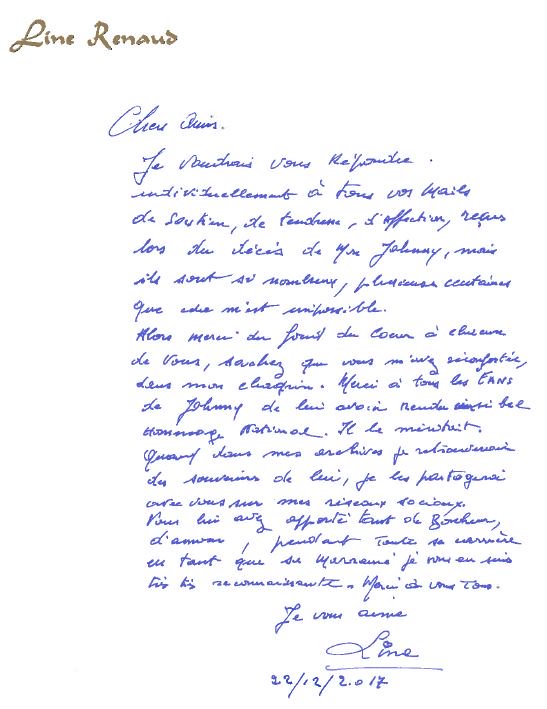 Line Renaud
Chers Amis.
Je voudrais vous Répondre.
individuellement à tous vos Mails
de Soutien, de tendresse, d'affection, reçus
lors du décès de mon Johnny, mais
ils sont si nombreux, plusieurs centaines
que cela m'est impossible.
Alors merci du fond du Coeur à chacun
de Vous, sachez que vous m'avez réconfortée,
dans mon chagrin. Merci à tous les FANS
de Johnny de lui avoir rendu un si bel
Hommage National. Il le méritait.
Quand dans mes archives je retrouverai
des souvenirs de lui, je les partagerai
avec vous sur mes réseaux sociaux.
Vous lui avez apporté tant de Bonheur,
d'amour, pendant Toute sa carrière
en tant que sa Marraine je vous en suis
très très reconnaissante. Merci à vous Tous.
Je vous aime
Line
22/12/2.017